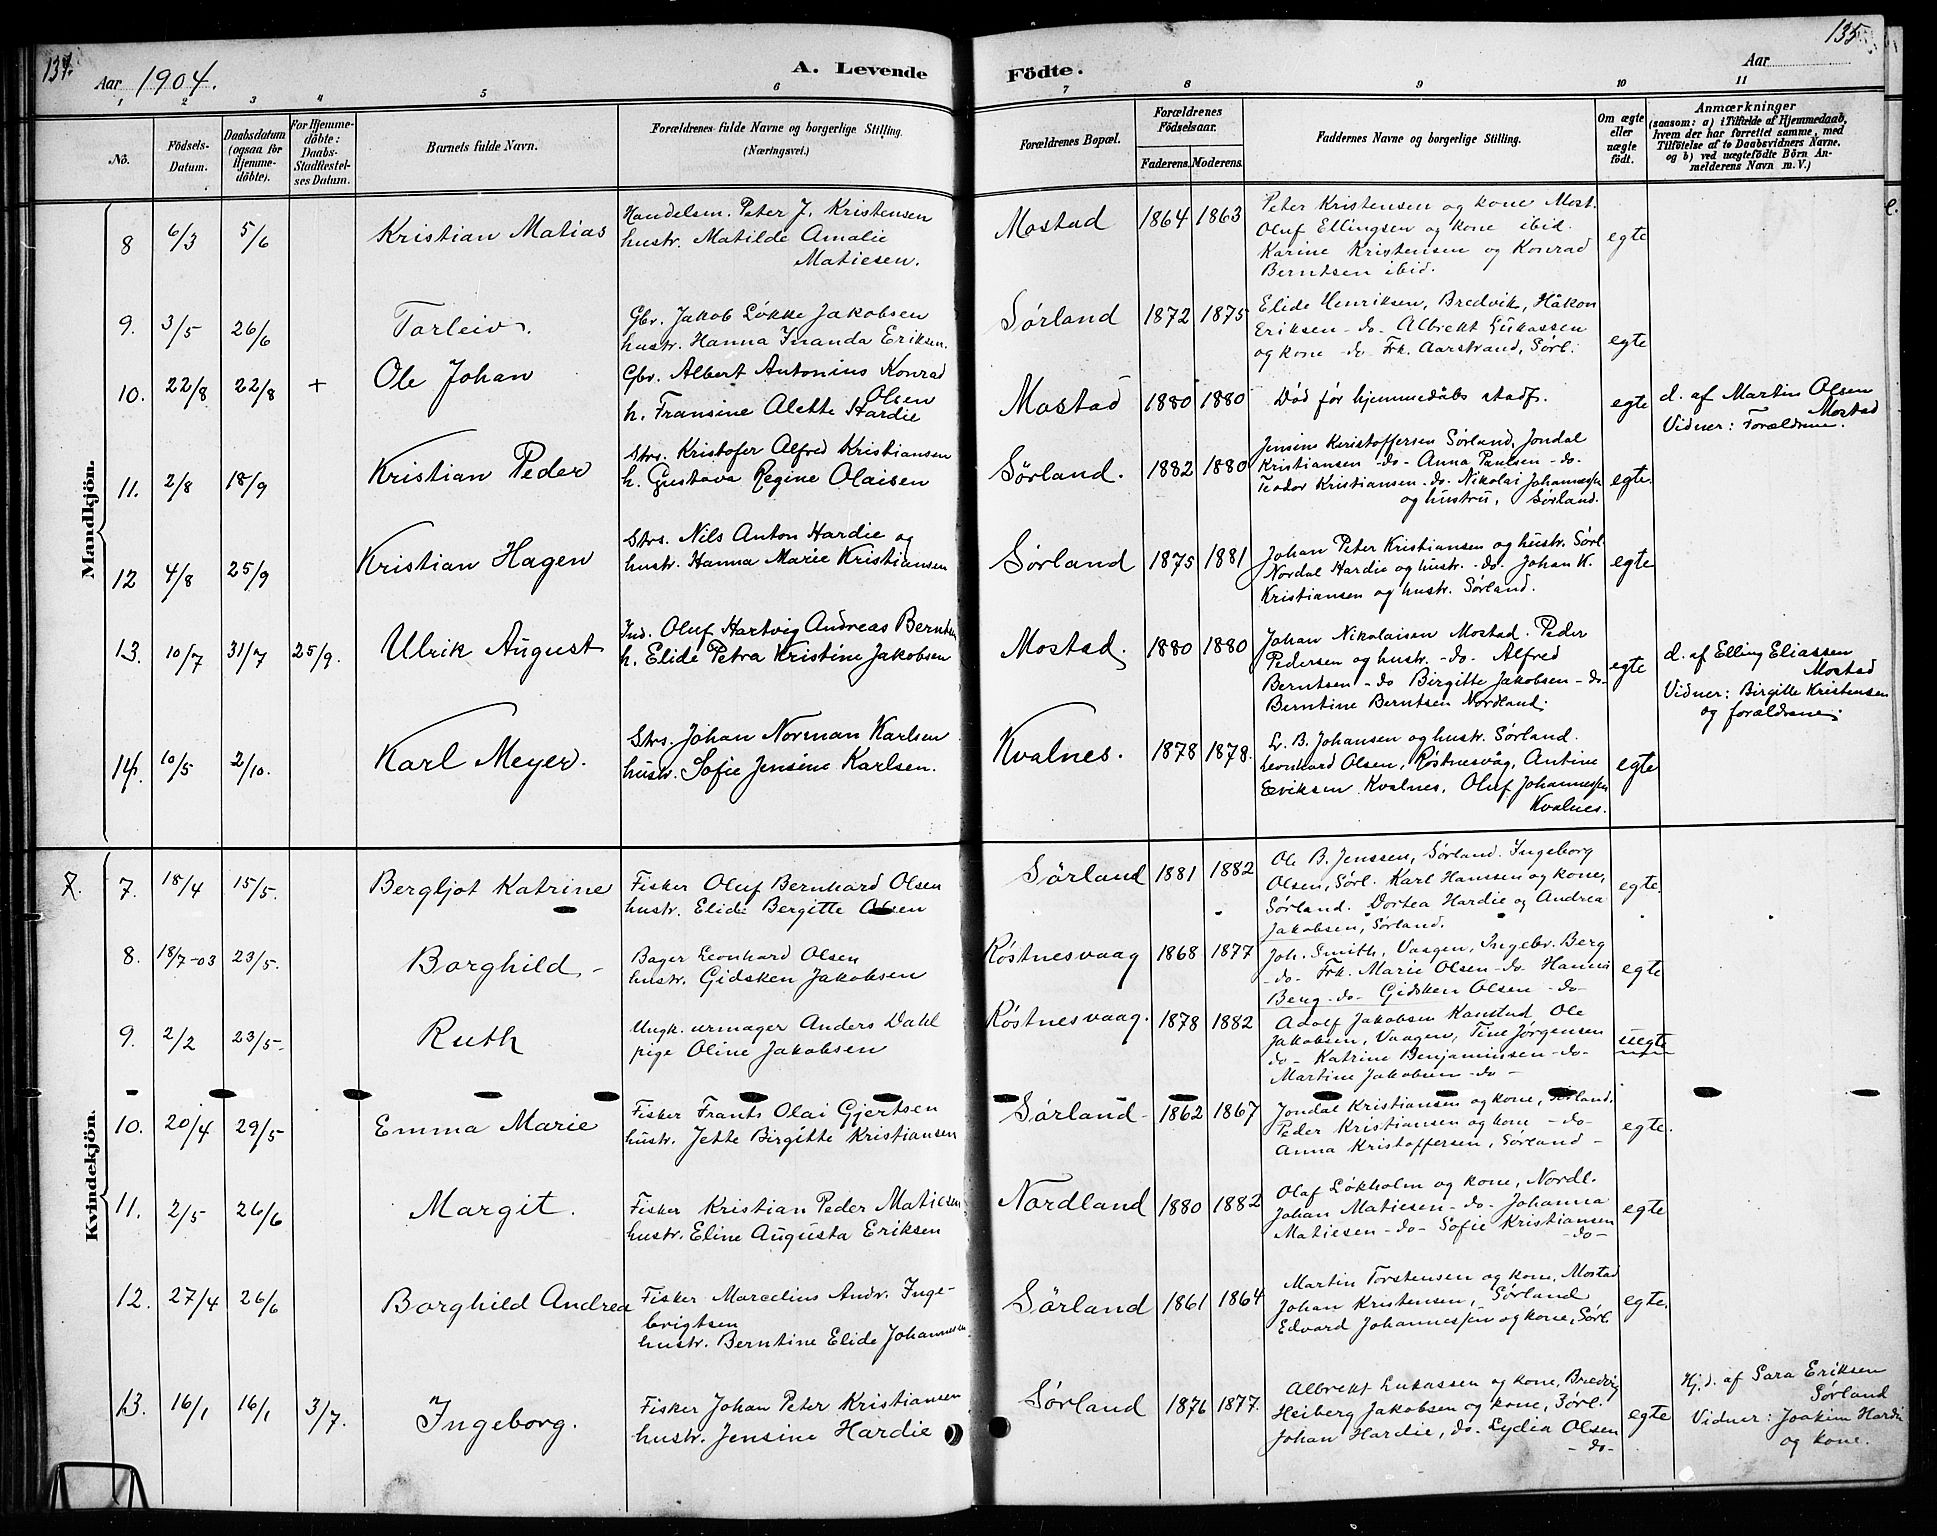 134.
135
Aar 1904.
A. Levende
Födte.
Aar
1 2 3 4 5 6
7 8 9 10 11
No.
Födsels-Datum.
Daabsdatum (ogsaa for Hjemme-döbte).
For Hjemme-döbte: Daabs-Stadfæstel-ses Datum.
Barnets fulde Navn.
Forældrenes fulde Navne og borgerlige Stilling.
(Næringsvei.)
Forældrenes Bopæl.
Forældrenes Födselsaar.
Faderens. Moderens.
Faddernes Navne og borgerlige Stilling.
Om ægte eller uægte födt.
Anmærkninger
(saasom: a) i Tilfælde af Hjemmedaab,
hvem der har forrettet samme, med
Tilföielse af to Daabsvidners Navne,
og b) ved uægtefödte Börn An-
melderens Navn m. V.)
Mandkjön.
8 6/3 5/6 Kristian Matias
Handelsm. Peter J. Kristensen
hustr. Matilde Amalie
Matiesen.
Mostad 1864 1863
Peter Kristensen og kone Most.
Oluf Ellingsen og kone ibid.
Karine Kristensen og Konrad
Berntsen ibid.
egte
9. 3/5 26/6 Torleiv.
Gbr. Jakob Løkke Jakobsen
hustr. Hanna Inanda Eriksen.
Sørland 1872 1875
Elide Henriksen, Bredvik, Håkon
Eriksen - do - Albrekt Lukassen
og kone - do - Frk. Aarstrand, Sørl.
egte
10. 22/8 22/8 + Ole Johan
Gbr. Albert Antonius Konrad
Olsen
h. Fransine Alette Hardie
Mostad 1880 1880
Död før hjemmedåbs stadf.
egte
d. af Martin Olsen
Mostad
Vidner: Forældrene.
11. 2/8 18/9 Kristian Peder
Strs. Kristofer Alfred Kristiansen
h. Gustava Regine Olaisen
Sørland. 1882 1880
Jensine Kristoffersen Sørland, Jondal
Kristiansen - do - Anna Paulsen - do -
Teodor Kristiansen - do - Nikolai Johannessen
og hustru, Sørland.
egte.
12 4/8 25/9 Kristian Hagen
Strs. Nils Anton Hardie og
hustr. Hanna Marie Kristiansen
Sørland 1875 1881
Johan Peter Kristiansen og hustr. Sørl
Nordal Hardie og hustr. - do - Johan K.
Kristiansen og hustr. Sørland.
egte
13. 10/7 31/7 25/9. Ulrik August
Ind. Oluf Hartvig Andreas Berntsen
h. Elide Petra Kristine Jakobsen
Mostad. 1880 1880
Johan Nikolaisen Mostad. Peder
Pedersen og hustr. - do - Alfred
Berntsen - do Birgitte Jakobsen - do -
Berntine Berntsen Nordland.
egte
d. af Elling Eliassen
Mostad
Vidner: Birgitte Kristensen
og forældrene.
14. 10/5 2/10. Karl Meyer.
Strs. Johan Norman Karlsen
hustr. Sofie Jensine Karlsen.
Kvalnes. 1878 1878.
Lr. B. Johansen og hustr. Sørland.
Leonhard Olsen, Røstnesvåg, Antine
Eeriksen Kvalnes, Oluf Johannessen
Kvalnes.
egte
Kvindekjön.
7. 7. 18/4 15/5. Bergljot Katrine
Fisker Oluf Bernhard Olsen
hustr. Elide Bergitte Olsen
Sørland 1881 1882
Ole B. Jenssen, Sørland. Ingeborg
Olsen, Sørl. Karl Hanssen og kone,
Sørland. Dortea Hardie og Andrea
Jakobsen, Sørland.
egte.
8. 18/7-03 23/5. Borghild -
Bager Leonhard Olsen
hustr. Gidsken Jakobsen
Røstnesvaag 1868 1877
Joh. Smith, Vaagen, Ingebr. Berg
- do - Frk. Marie Olsen - do - Hanna
Berg - do - Gidsken Olsen - do -
egte
9. 2/2 23/5- Ruth
Ungk. urmager Anders Dahl
pige Oline Jakobsen
Røstnesvaag. 1878 1882
Adolf Jakobsen Kanstad Ole
Jakobsen, Vaagen, Tine Jørgensen
do - Katrine Benjaminsen - do -
Martine Jakobsen - do -
uegte
10. 20/4 29/5 Emma Marie
Fisker Frants Olai Gjertsen
hustr. Jette Birgitte Kristiansen
Sørland - 1862 1867
Jondal Kristiansen og kone, Sørland.
Peder Kristiansen og kone - do -
Anna Kristoffersen, Sørland -
egte.
11. 2/5 26/6 Margit.
Fisker Kristian Peder Matiesen
hustr. Eline Augusta Eriksen
Nordland 1880 1882
Olaf Løkholm og kone, Nordl.
Johan Matiesen - do - Johanna
Matiesen - do - Sofie Kristiansen
- do -
egte
12. 27/4 26/6 Borghild Andrea
Fisker Marcelius Andr. Inge-
brigtsen
hustr. Berntine Elide Johannessen
Sørland 1861 1864
Martin Torstensen og kone, Mostad
Johan Kristensen, Sørland
Edvard Johannessen og kone, Sørl.
egte.
13. 16/1 16/1 3/7. Ingeborg.
Fisker Johan Peter Kristiansen
hustr. Jensine Hardie
Sørland 1876 1877.
Albrekt Lukassen og kone, Bredvig
Heiberg Jakobsen og kone, Sørl.
Johan Hardie, do. Lydia Olsen
- do -
egte
Hj.d. af Sara Eriksen
Sørland
Vidner: Joakim Hardie
og kone.